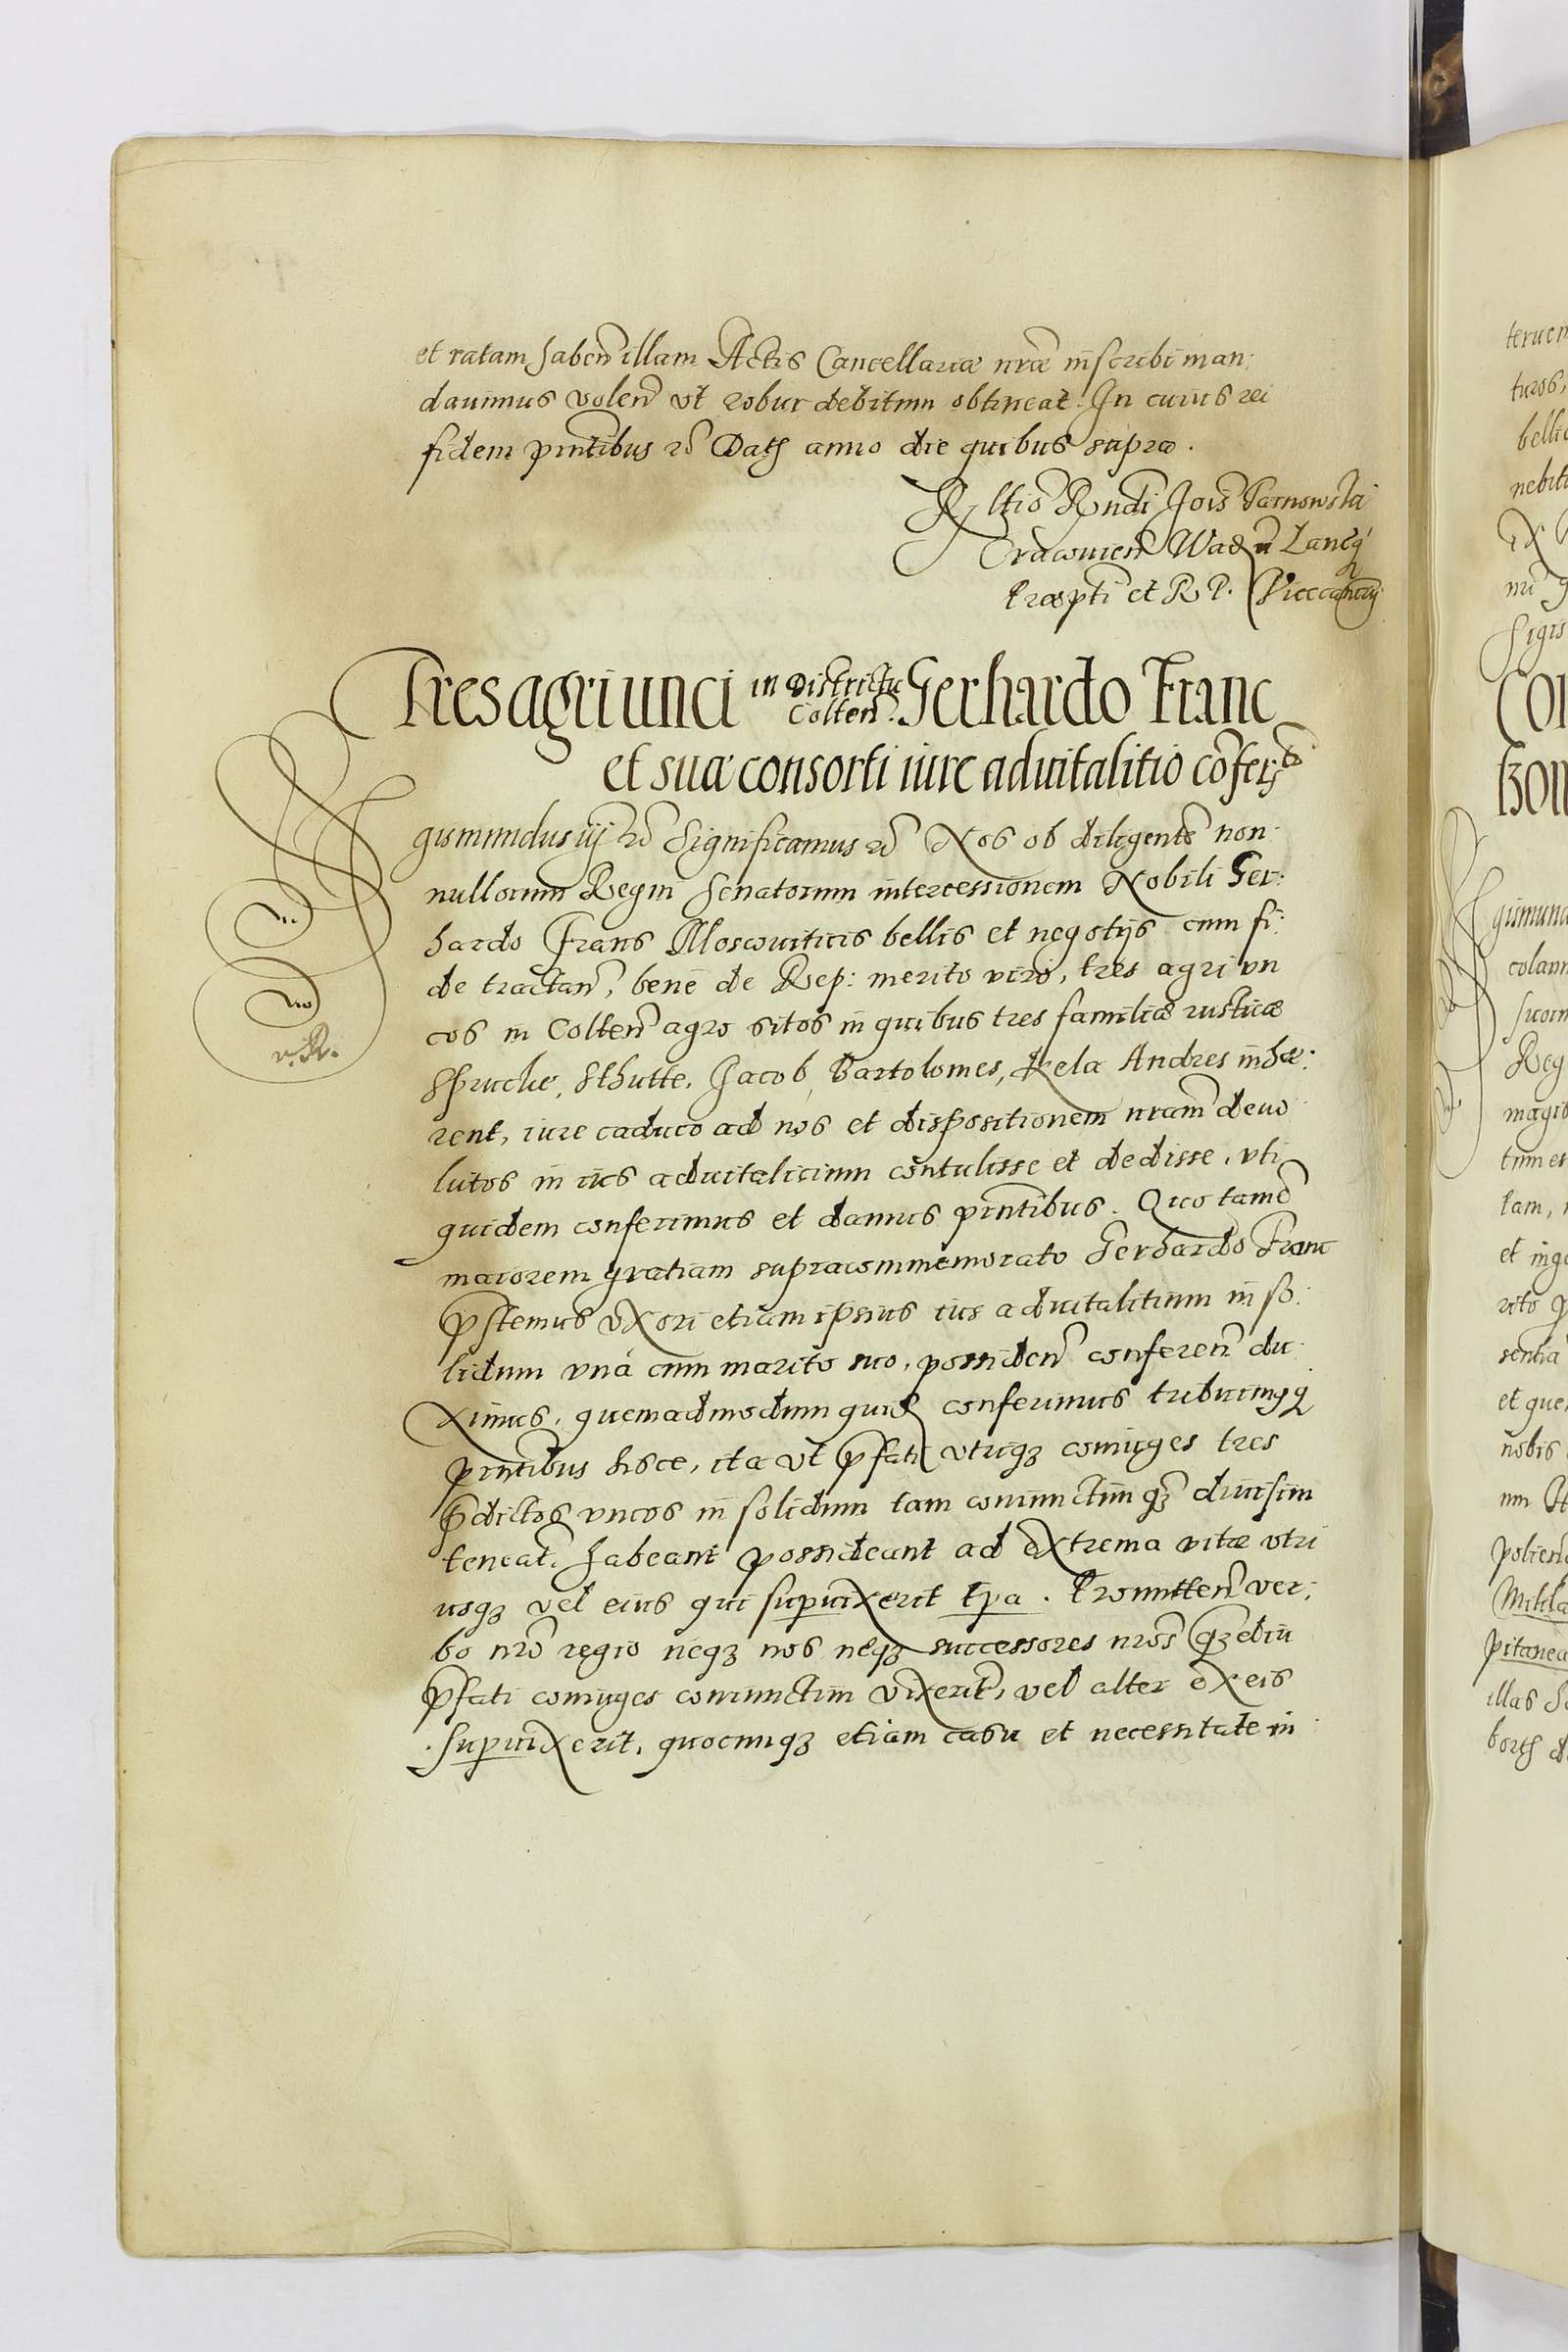 et ratam haben̄ illam Actis Cancellariæ nr̄æ inscribi man:
davimus volen̄ vt robur debitum obtineat. In cuius rei
fidem pn̄tibus &c Datȝ anno die quibus supra.
Rltio Rndi Jois Tarnowski
Cracovien̄ Wad n Lancq
Præpti et R P. Vicecancrij
Tres agri unci in Districtu Colten̄. Gerhardo Franc
et suæ consorti iure aduitalitio cōfertr
Sigismundus iij &c Significamus &c Nos ob diligentē non:
nullorum Regni Senatorum intercessionem Nobili Ger:
hardo Frans Moscouiticis bellis et negotijs cum fi:
de tractan̄, bene de Rep: merito viro, tres agri vn
cos in Colten̄ agro sitos in quibus tres familiæ rusticæ
Spruche, Sthutte, Jacob Bartolomes, Kela Andres inhæ:
rent, iure caduco ad nos et dispositionem nr̄am deuo
lutos in ius aduitalicium contulisse et dedisse, vti
quidem conferimus et damus pn̄tibus. Quo tamē
maiorem gratiam supracommemorato Gerhardo Franc
p̄stemus vxori etiam ipsius ius aduitalitium in so:
lidum vná cum marito suo, possiden̄ conferen̄ du
ximus, quemadmodum quid conferimus tribuimqȝ
pn̄tibus hisce, ita vt p̄fati vtriqȝ coniuges tres
p̄dictos vncos in solidum tam coniunctim qȝ diuisim
teneāt habeant possideant ad extrema vitæ vtri
usqȝ vel eius qui supuixerit tpa. Promitten̄ ver:
bo nr̄o regio neqȝ nos neqȝ successores nr̄os qȝ diu
p̄fati coniuges coniunctim vixerit, vel alter ex eis
supuixerit, quocunqȝ etiam casu et necessitate in
v.R.